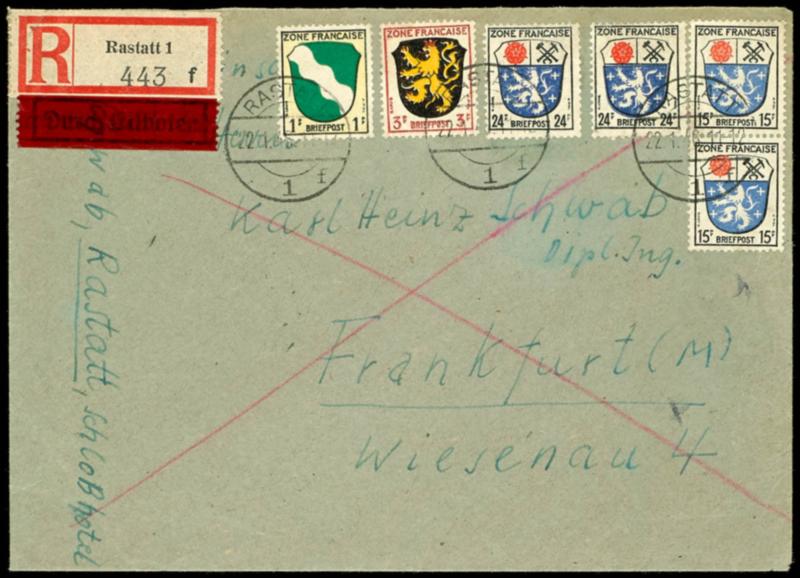 R
Rastatt 1
443 f
Durch Eilboten
ZONE FRANCAISE
1F BRIEFPOST 1F
ZONE FRANCAISE
3F BRIEFPOST 3F
ZONE FRANÇAISE
24F BRIEFPOST 24F
ZONE FRANÇAISE
24F BRIEFPOST 24F
ZONE FRANÇAISE
15F BRIEFPOST 15F
ZONE FRANÇAISE
15F BRIEFPOST 15F
RASTATT
22.1.
1 f
RASTATT
22.1.
1 f
RASTATT
22.1.
1 f
Karl Heinz Schwab
Dipl. Ing.
Frankfurt (M)
Wiesenau 4
Schwab, Rastatt, Schloßhotel